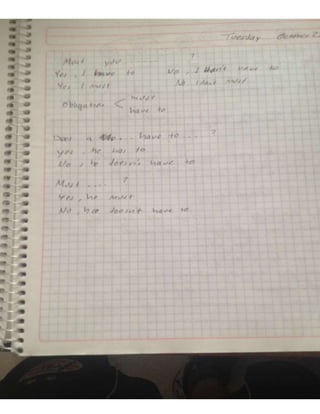 Tuesday October 2
Must you ?
Yes, I have to No, I don't have to
Yes I must No I don't must
Obligation < must
have to
Does a ... have to ... ?
yes, he has to
No, he doesn't have to
Must .... ?
Yes, he must
No, he doesn't have to